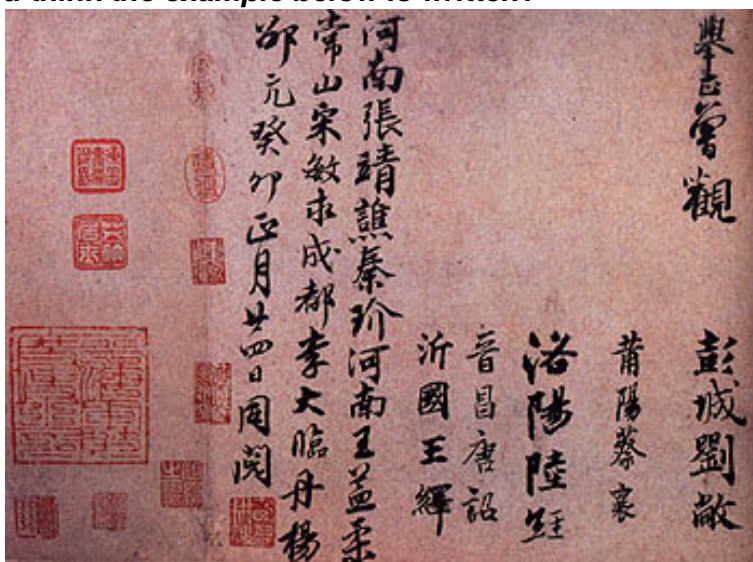 think the example below is written?
舉正曾觀
彭城劉敞
莆陽蔡襄
洛陽陸經
晉昌唐詔
沂國王繹
河南張靖譙秦玠河南王益柔
常山宋敏求成都李大臨丹楊
邵亢癸卯正月廿四日同閱